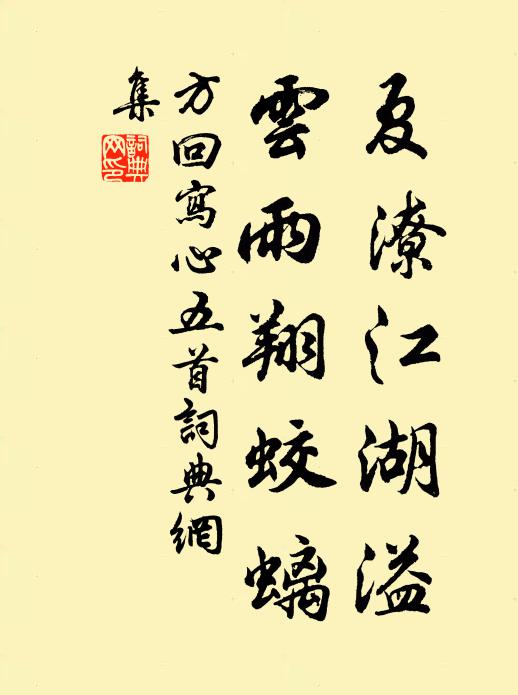 夏潦江湖溢
雲雨翔蛟螭
方回寫心五首詞典網
集
詞典
网印